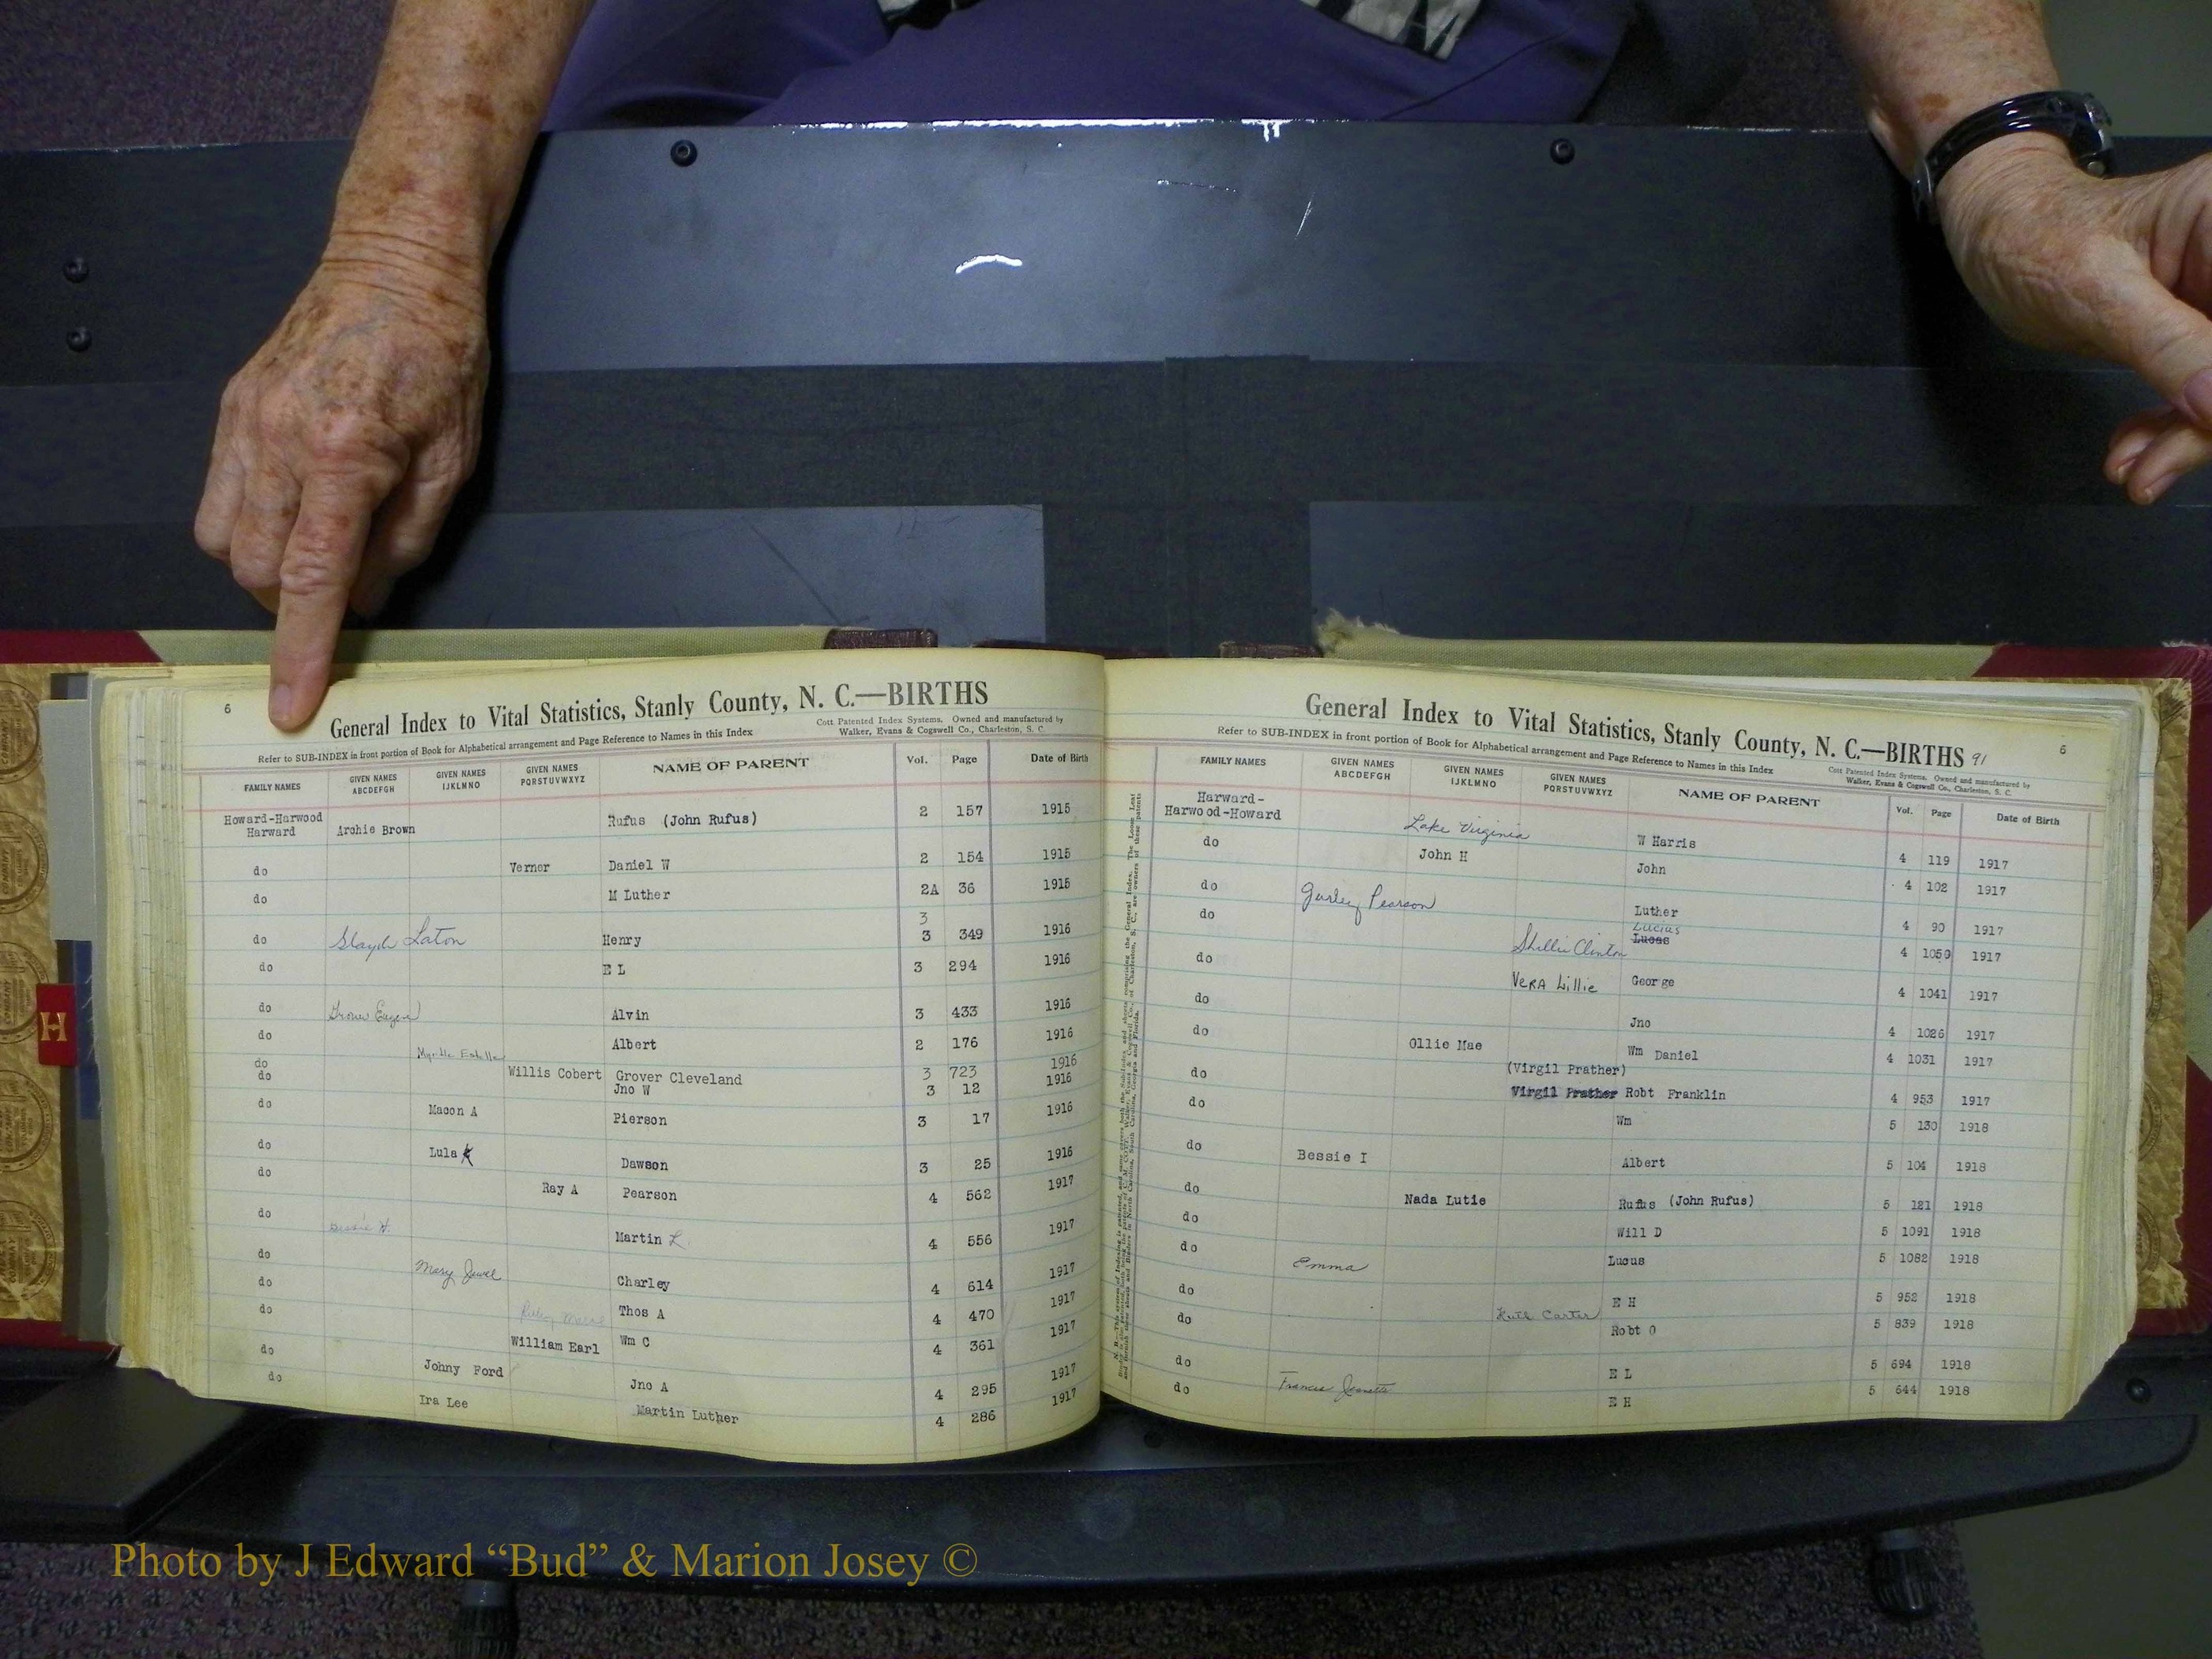 6
General Index to Vital Statistics, Stanly County, N. C.—BIRTHS
Refer to SUB-INDEX in front portion of Book for Alphabetical arrangement and Page Reference to Names in this Index
Cott Patented Index Systems. Owned and manufactured by
Walker, Evans & Cogswell Co., Charleston, S. C.
FAMILY NAMES GIVEN NAMES ABCDEFGH GIVEN NAMES IJKLMNO GIVEN NAMES PQRSTUVWXYZ NAME OF PARENT Vol. Page Date of Birth
Howard-Harwood
Harward Archie Brown Rufus (John Rufus) 2 157 1915
do Verner Daniel W 2 154 1915
do M Luther 2A 36 1915
3
do Laton Henry 3 349 1916
do E L 3 294 1916
do Eugene Alvin 3 433 1916
do Myrtle Estelle Albert 2 176 1916
do Willis Cobert Grover Cleveland 3 723 1916
do Jno W 3 12 1916
do Macon A Pierson 3 17 1916
do Lula Dawson 3 25 1916
do Ray A Pearson 4 562 1917
do Martin L. 4 556 1917
do Mary Jewel Charley 4 614 1917
do Thos A 4 470 1917
do William Earl Wm C 4 361 1917
do Johny Ford Jno A 4 295 1917
do Ira Lee Martin Luther 4 286 1917
General Index to Vital Statistics, Stanly County, N. C.—BIRTHS 91
6
Refer to SUB-INDEX in front portion of Book for Alphabetical arrangement and Page Reference to Names in this Index
Cott Patented Index Systems. Owned and manufactured by
Walker, Evans & Cogswell Co., Charleston, S. C.
FAMILY NAMES GIVEN NAMES ABCDEFGH GIVEN NAMES IJKLMNO GIVEN NAMES PQRSTUVWXYZ NAME OF PARENT Vol. Page Date of Birth
Harward-
Harwood-Howard Lake Virginia W Harris 4 119 1917
do John H John 4 102 1917
do Gurley Pearson Luther 4 90 1917
Lucius
do Shellie Clinton Lucas 4 1050 1917
do Vera Lillie George 4 1041 1917
do Jno 4 1026 1917
do Ollie Mae Wm Daniel 4 1031 1917
(Virgil Prather)
do Virgil Prather Robt Franklin 4 953 1917
do Wm 5 130 1918
do Bessie I Albert 5 104 1918
do Nada Lutie Rufus (John Rufus) 5 121 1918
do Will D 5 1091 1918
do Emma Lucus 5 1082 1918
do E H 5 952 1918
do Ruth Carter Robt O 5 839 1918
do E L 5 694 1918
do Francis Jenette E H 5 644 1918
H
Photo by J Edward “Bud” & Marion Josey ©